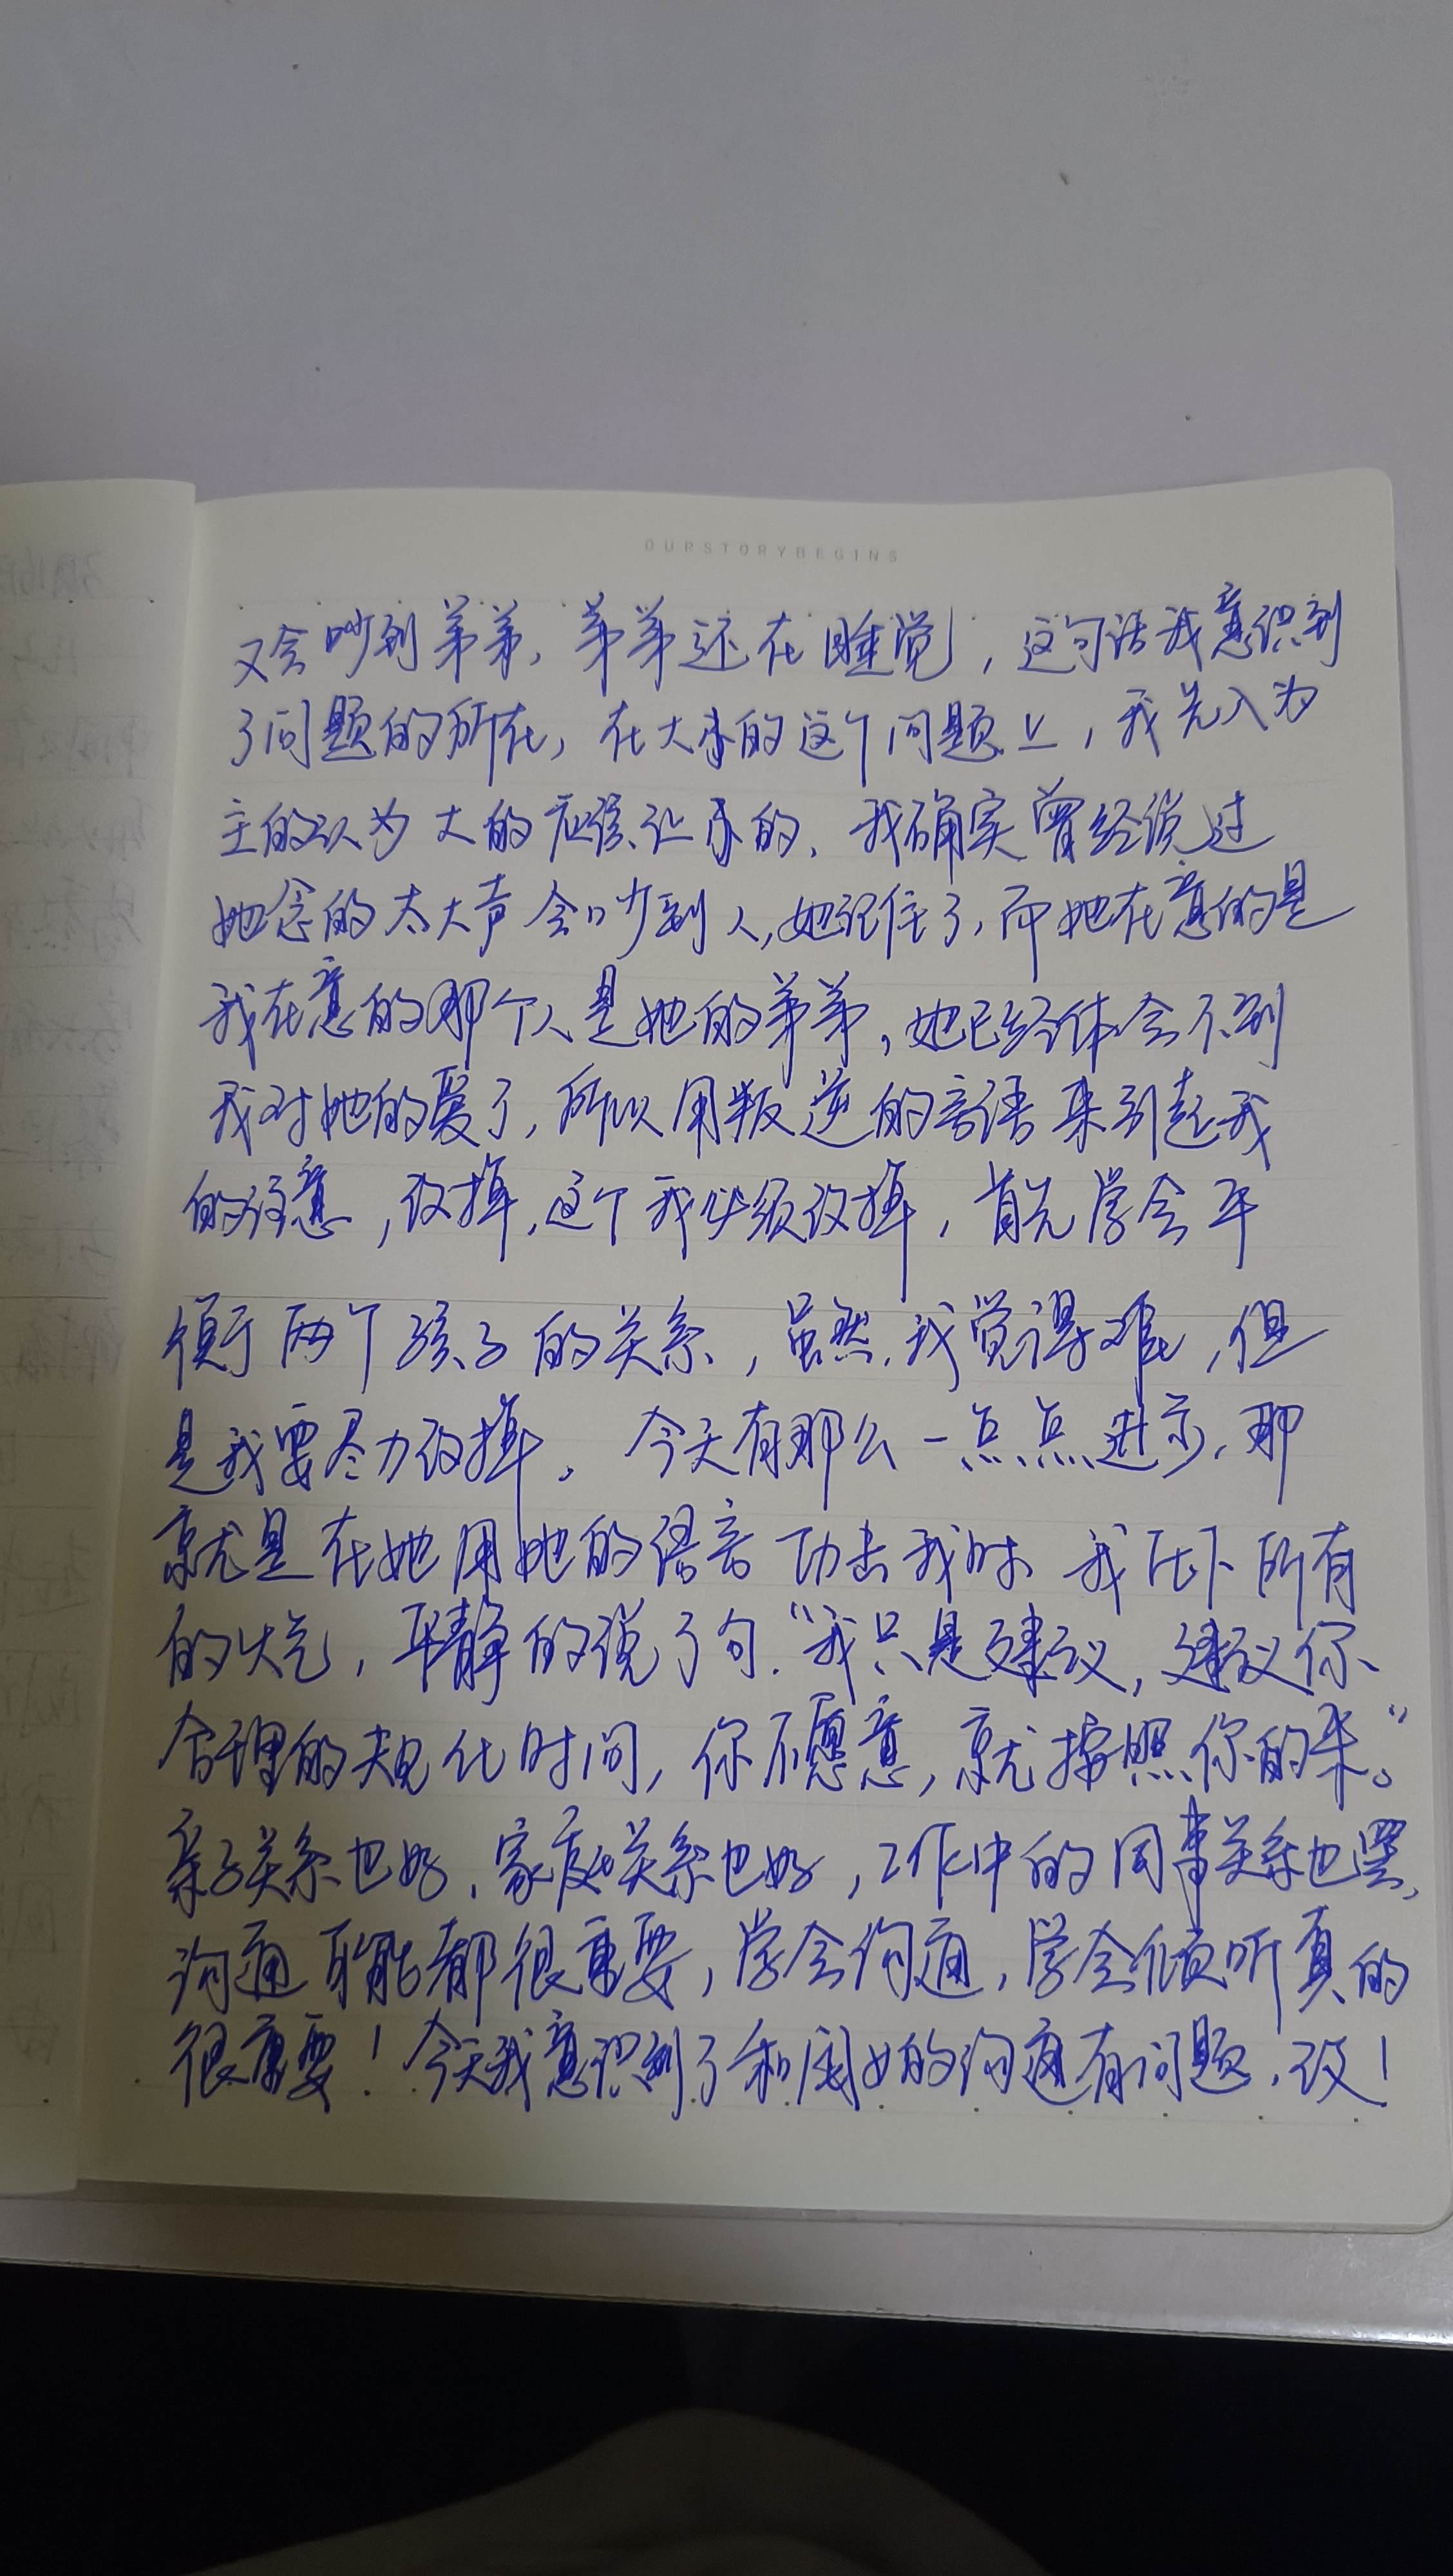 OURSTORYBEGINS
又会吵到弟弟，弟弟还在睡觉，这句话我意识到
了问题的所在，在大小的这个问题上，我先入为
主的认为大的应该让小的，我确实曾经说过
她念的太大声会吵到人，她记住了，而她在意的是
我在意的那个人是她的弟弟，她已经体会不到
我对她的爱了，所以用叛逆的言语来引起我
的注意，改掉，这个我必须改掉，首先学会平
衡两个孩子的关系，虽然，我觉得难，但
是我要尽力改掉。今天有那么一点点进步，那
就是在她用她的语言功击我时 我压下所有
的火气，平静的说了句“我只是建议，建议你
合理的规化时间，你不愿意，就按照你的来。”
亲子关系也好，家庭关系也好，工作中的同事关系也罢，
沟通 都很重要，学会沟通，学会倾听真的
很重要！今天我意识到了和 的沟通有问题，改！